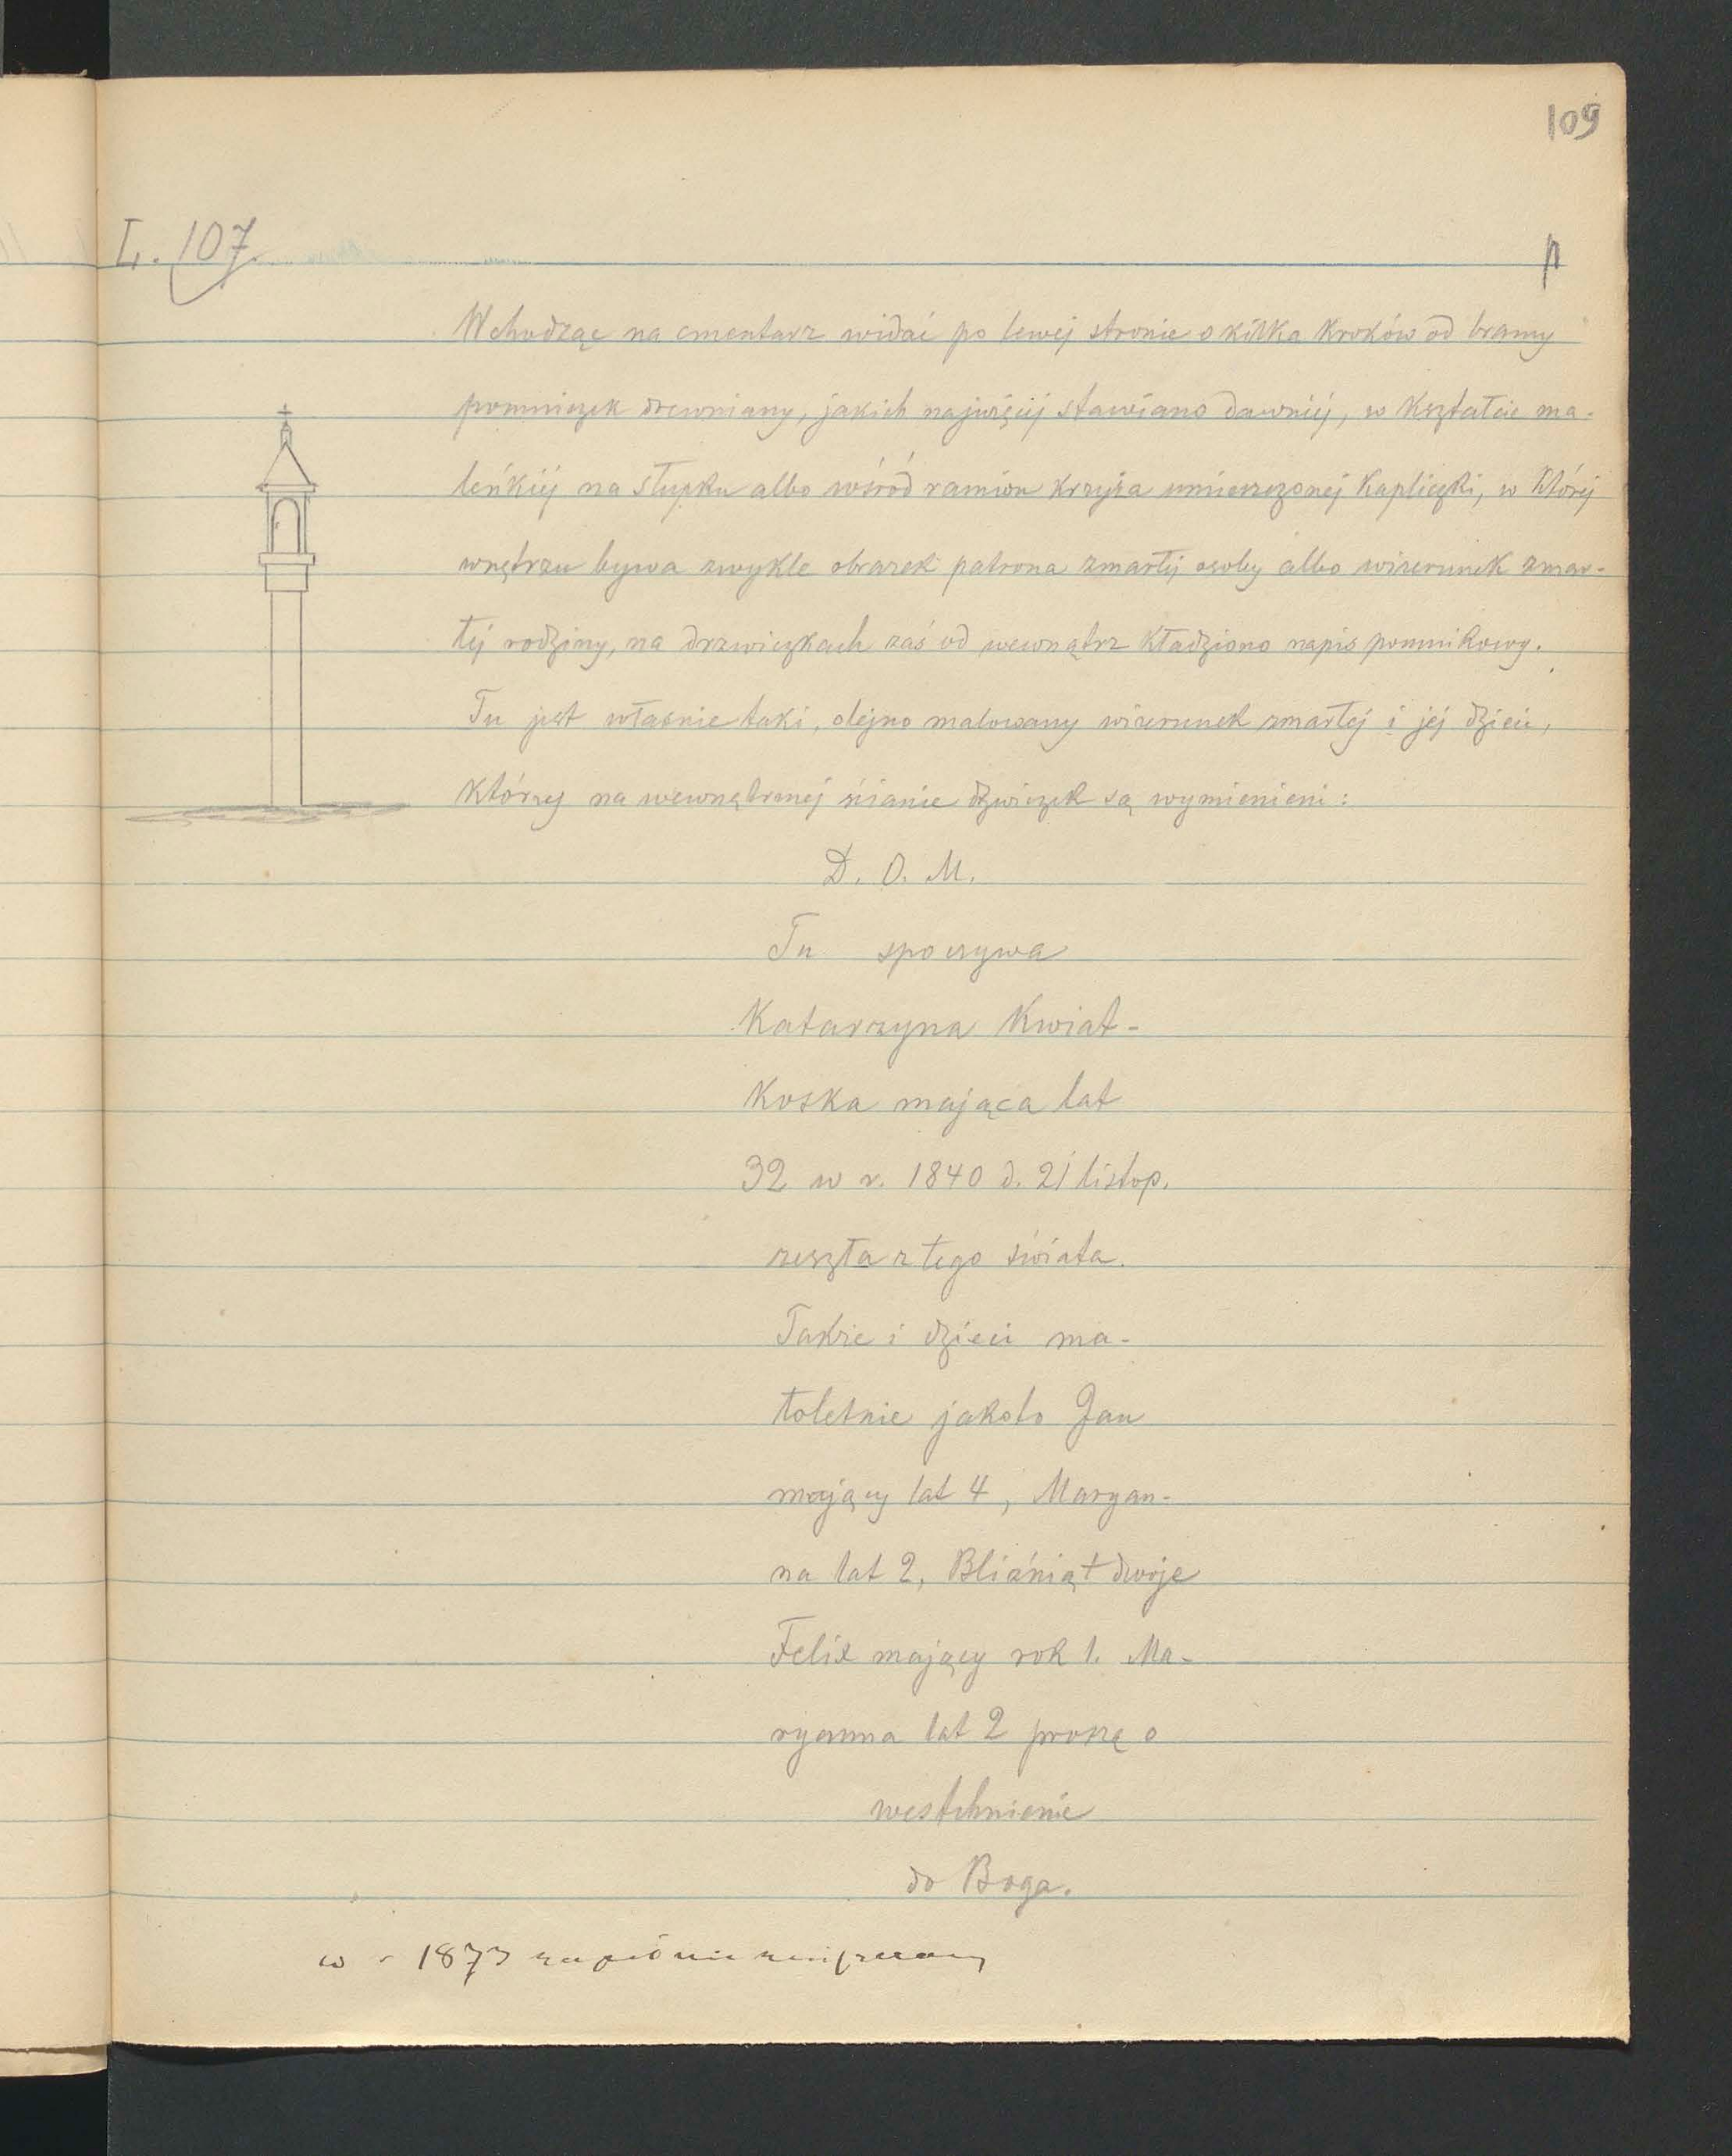 109
L. 107.
Wchodząc na cmentarz widać po lewej stronie o kilka kroków od bramy
pomniczek drewniany, jakich najwięcéj stawiano dawniéj, w kształcie ma-
leńkiéj na słupku albo wśród ramion krzyża umieszczonej kapliczki, w któréj
wnętrzu bywa zwykle obrazek patrona zmarłéj osoby albo wizerunek zmar-
łéj rodziny, na drzwiczkach zaś od wewnątrz kładziono napis pomnikowy.
Tu jest własnie taki, olejno malowany wizerunek zmarłej i jej dzieci,
którzy na wewnętrznej ścianie dzwiczek są wymienieni:
D. O. M.
Tu spoczywa
Katarzyna Kwiat-
koska mająca lat
32 w r. 1840 d. 21 listop.
zeszła z tego świata.
Takze i dzieci ma-
łoletnie jakoto Jan
mający lat 4, Maryan-
na lat 2, Bliźniąt dwoje
Felix mający rok 1. Ma-
ryanna lat 2 proszę o
westchnienie
do Boga.
w r 1873 zupełnie